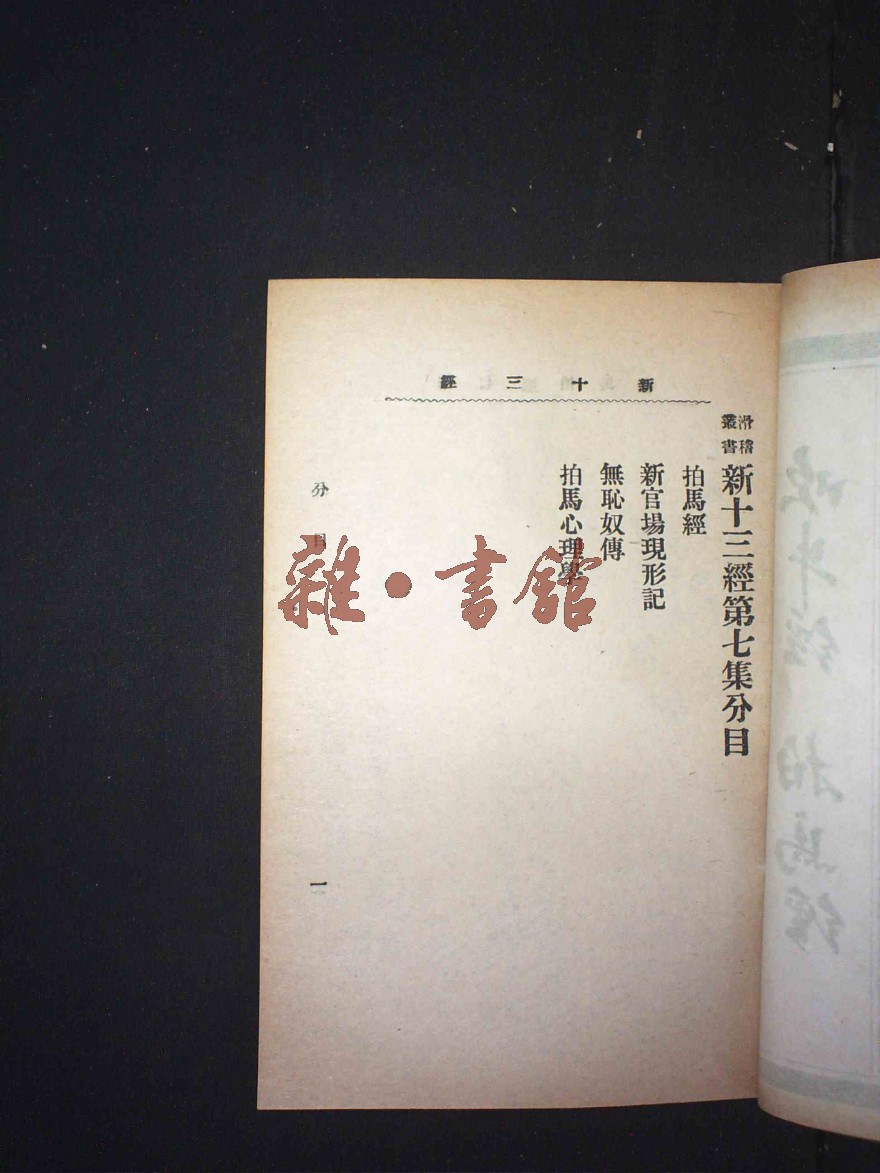 新十三經
滑稽叢書 新十三經第七集分目
拍馬經
新官場現形記
無恥奴傳
拍馬心理學
分目
一
雜·書館
拍馬經